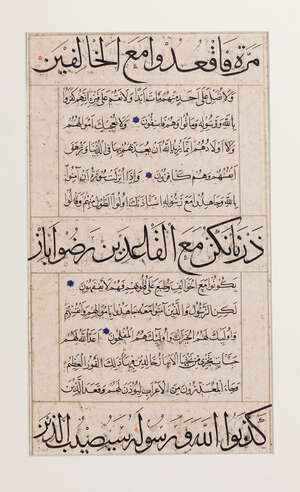 مرة فاقعدوا مع الخالفين
ولا تصل على احد منهم مات ابدا ولا تقم على قبره انهم كفروا
بالله ورسوله وماتوا وهم فاسقون ولا تعجبك اموالهم
واولادهم انما يريد الله ان يعذبهم بها في الدنيا وتزهق
انفسهم وهم كافرون واذا انزلت سورة ان امنوا
بالله وجاهدوا مع رسوله استاذنك اولوا الطول منهم وقالوا
ذرنا نكن مع القاعدين رضوا بان
يكونوا مع الخوالف وطبع على قلوبهم فهم لا يفقهون
لكن الرسول والذين امنوا معه جاهدوا باموالهم وانفسهم
واولئك لهم الخيرات واولئك هم المفلحون اعد الله لهم
جنات تجري من تحتها الانهار خالدين فيها ذلك الفوز العظيم
وجاء المعذرون من الاعراب ليؤذن لهم وقعد الذين
كذبوا الله ورسوله سيصيب الذين